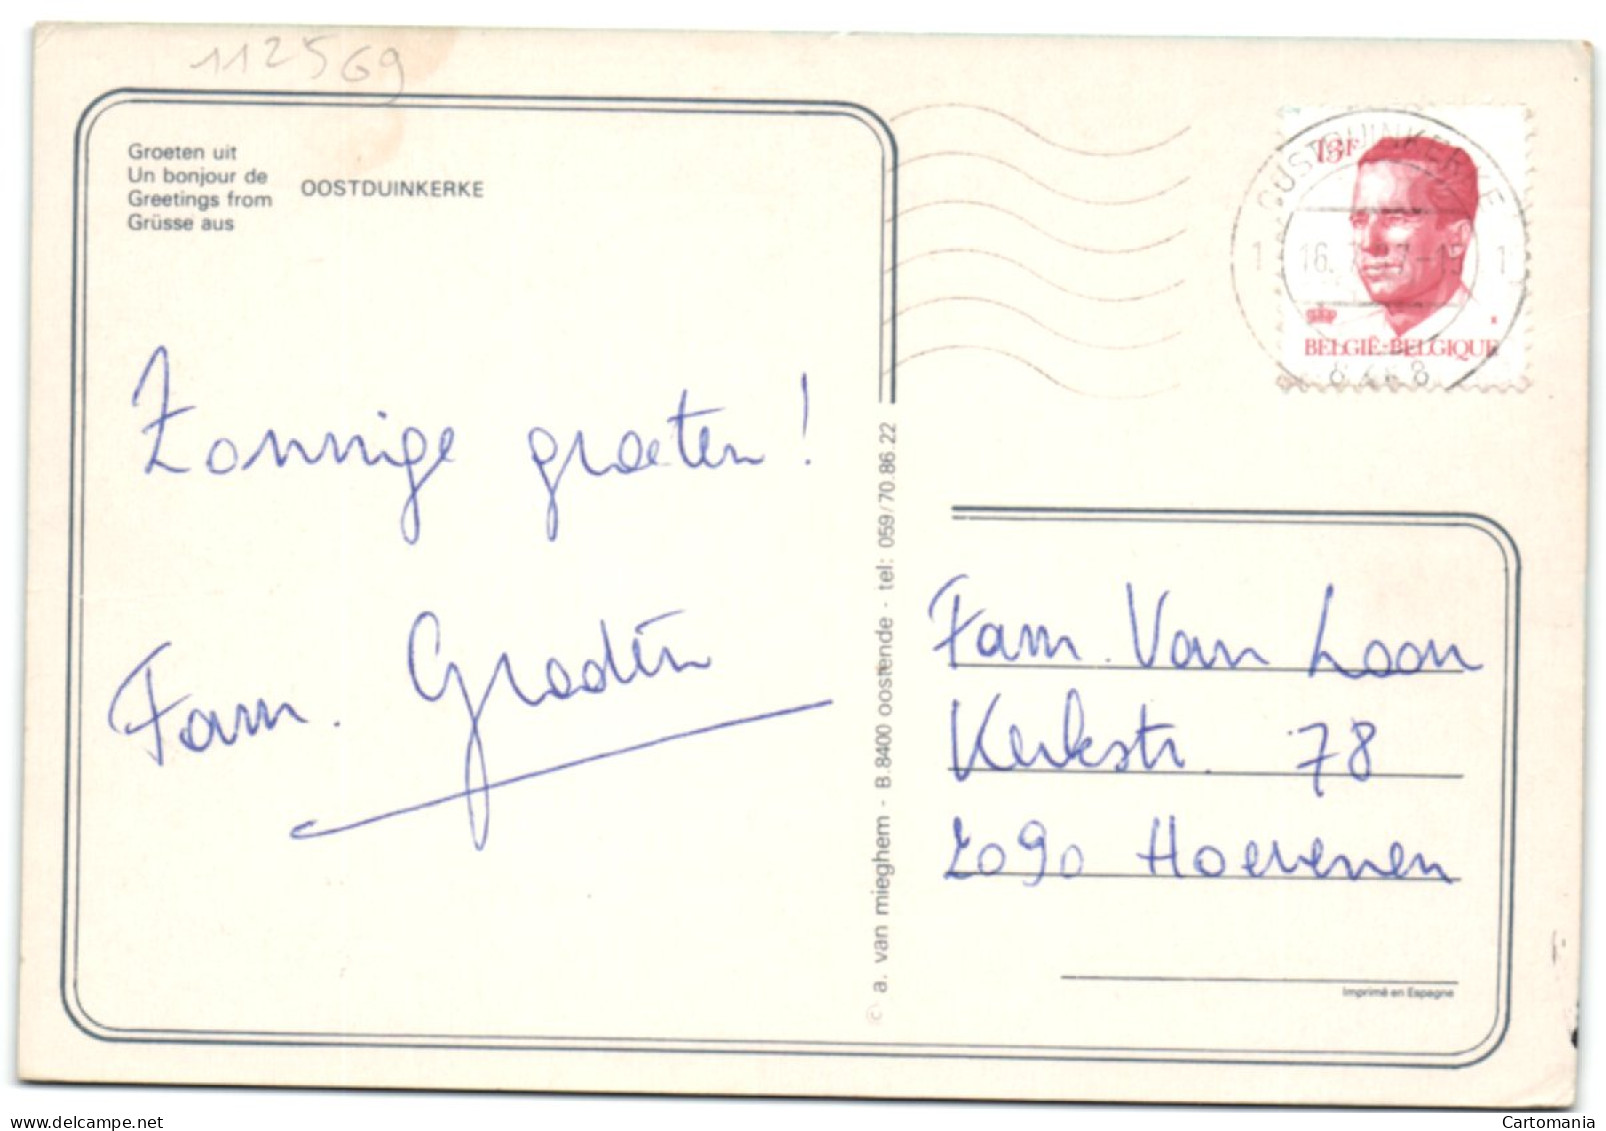 112569
Groeten uit
Un bonjour de
Greetings from
Grüsse aus
OOSTDUINKERKE
Zonnige groeten!
Fam.
a. van mieghem - B.8400 oostende - tel: 059/70.86.22
13F
OOSTDUINKERKE
1
1
BELGIË-BELGIQUE
Fam. Van Loon
Kerkstr. 78
2090 Hoevenen
Imprimé en Espagne
delcampe.net
Cartomania